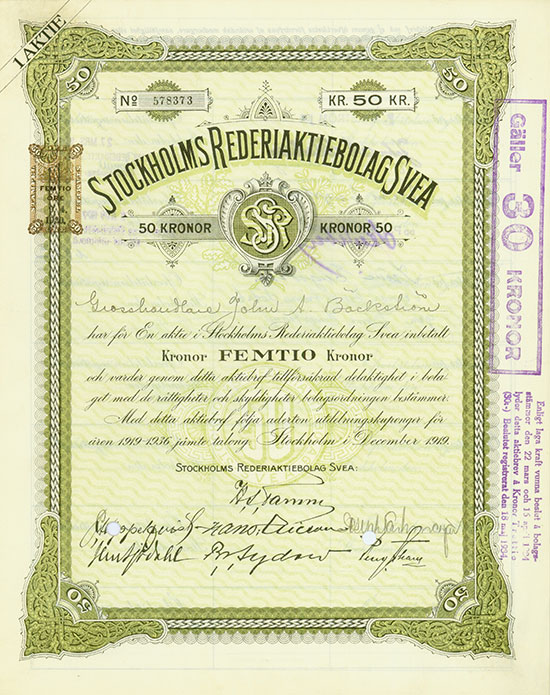 1 AKTIE
50
50
No 578373
KR. 50 KR.
STOCKHOLMS REDERIAKTIEBOLAG SVEA
50 KRONOR
KRONOR 50
FEMTIO
ÖRE
Grosshandlare John A. Bäckström
har för En aktie i Stockholms Rederiaktiebolag Svea inbetalt
Kronor FEMTIO Kronor
och varder genom detta aktiebref tillförsäkrad delaktighet i bola
get med de rättigheter och skyldigheter bolagsordningen bestämmer.
Med detta aktiebref följa aderton utdelningskuponger för
åren 1919-1936 jämte talong. Stockholm i December 1919.
STOCKHOLMS REDERIAKTIEBOLAG SVEA:
50
50
Gäller 30 KRONOR
Enligt laga kraft vunna beslut å bolags-
stämmor den 22 mars och 15 1934
lyder detta aktiebrev å Kronor Trettio
(30:-) Beslutet registrerat den 16 maj 1934.